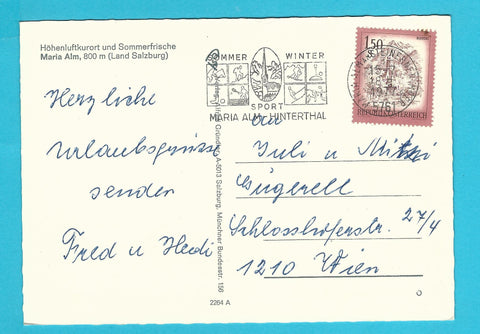 Höhenluftkurort und Sommerfrische
Maria Alm, 800 m (Land Salzburg)
Herzliche
Urlaubsgrüsse
senden
Fred u Hedi
SOMMER WINTER
SPORT
MARIA ALM - HINTERTHAL
1.50
REPUBLIK ÖSTERREICH
5761
An
Juli u Mitzi
Gügerell
Schlosshoferstr. 27/4
1210 Wien
Gründler, A-5013 Salzburg, Münchner Bundesstr. 156
2264 A